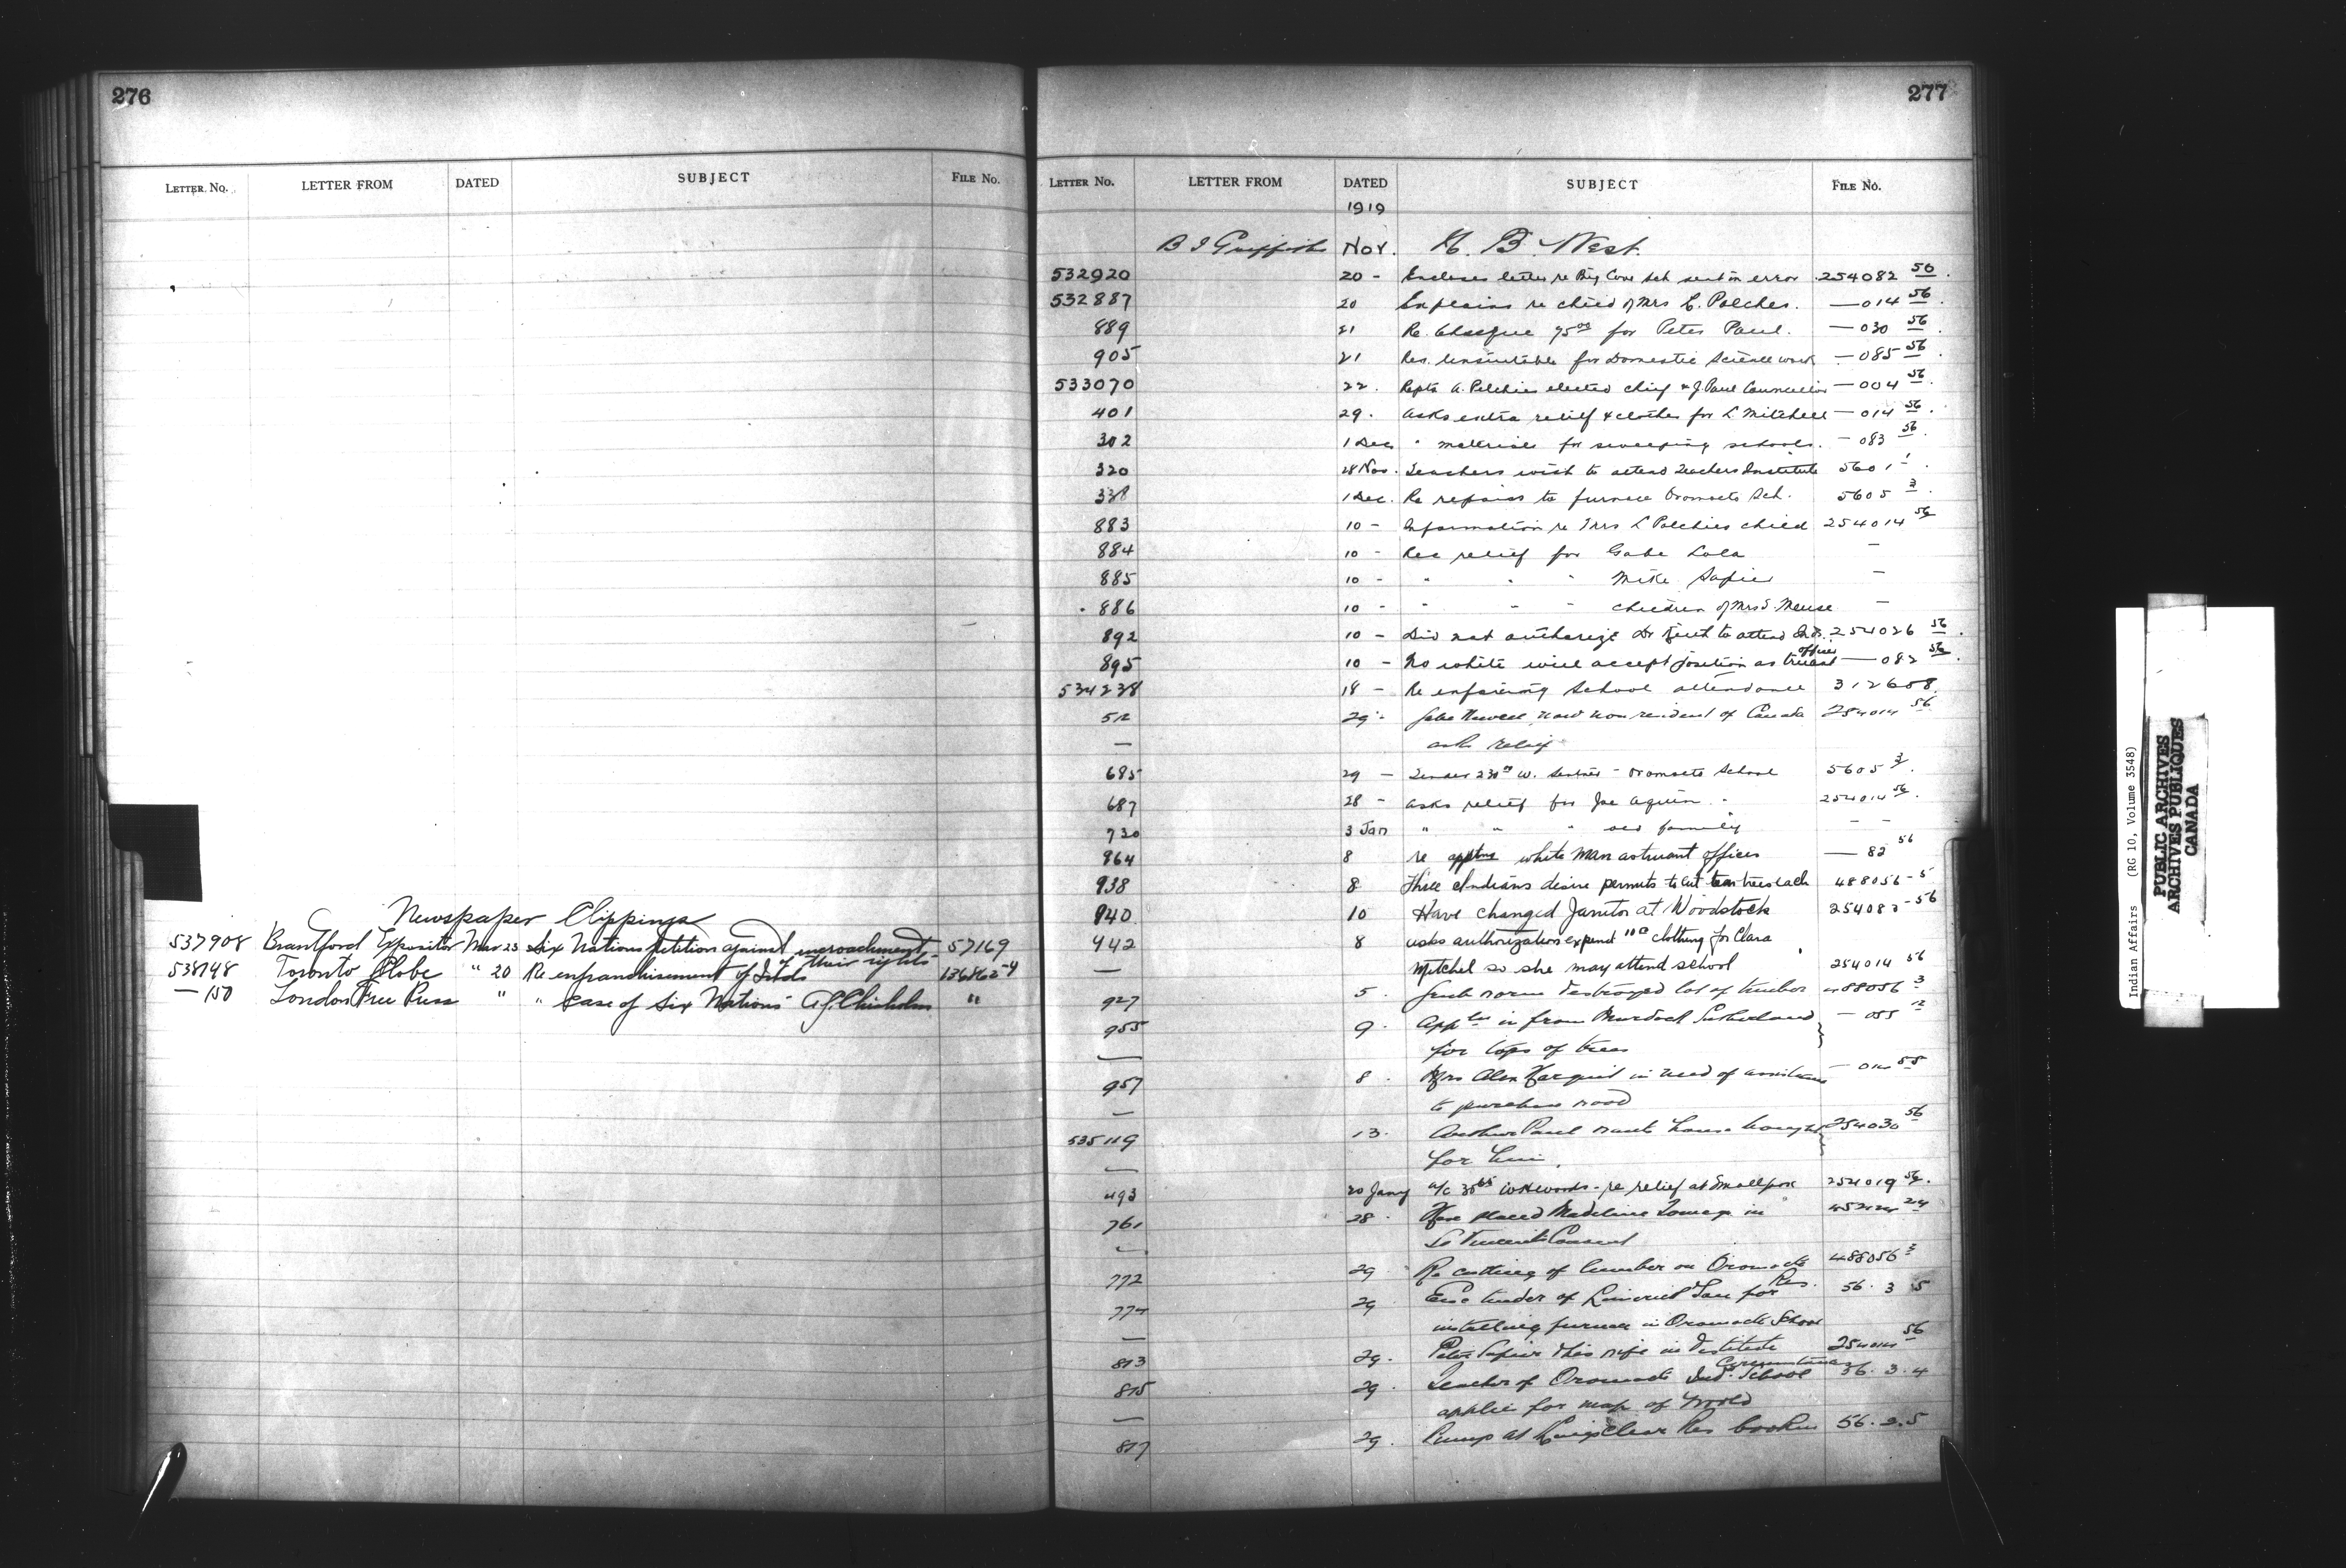 276
LETTER NO. LETTER FROM DATED SUBJECT FILE NO.
Newspaper Clippings
537908 Brantford Expositor Mar 23 Six Nations petition against encroachment 57169
of their rights
538148 Toronto Globe " 20 Re enfranchisement of Inds 136862-4
— 150 London Free Press " " case of Six Nations A.G. Chisholm "
277
LETTER NO. LETTER FROM DATED SUBJECT FILE NO.
1919
B J Griffith Nov. N. B. West.
532920 20 - Encloses letter re Big Cove Sch sent in error 254082 50
532887 20 Explains re child of Mrs L. Polches. — 014 56
889 21 Re. Cheque 75 00 for Peter Paul. — 030 56
905 21 Res. unsuitable for Domestic Science work — 085 56
533070 22. Repts A. Polchies elected chief & J. Paul Councillor — 004 56
401 29. asks extra relief & clothes for L Mitchell — 014 56
302 1 Dec " material for sweeping schools. — 083 56
320 28 Nov. Teachers wish to attend Teachers Institute 5601-1
338 1 Dec. Re repairs to furnace Oromocto Sch. 5605 3
883 10 - Information re Mrs L Polchies child 254014 56
884 10 - Rec relief for Gabe Lola —
885 10 - " " " Mike Sapier —
886 10 - " " " children of Mrs S. Meuse —
892 10 - Did not authorize Dr to attend Inds. 254026 56
895 10 - No white will accept position as truant officer — 082 56
534238 18 - Re enforcing School attendance 312608
512 29 - Gabe now non resident of Canada 254014 56
— asks relief
685 29 - Tender 230 W. - Oromocto School 5605 3
687 28 - asks relief for Joe Aquin 254014 56
730 3 Jan " " " and family — —
864 8 re apptmt white man as truant officer — 82 56
938 8 Three Indians desire permits to cut ten trees each 488056-5
940 10 Have changed Janitor at Woodstock 254083-56
942 8 asks authorization expend 11 00 clothing for Clara
— Mitchel so she may attend school 254014 56
927 5. destroyed lot of timber 488056 3
955 9. from Murdoch Sutherland — 055 12
— for tops of trees
957 8. Mrs Alex in need of assistance — 014 55
— to purchase wood
535119 13. Paul wants house bought 254030 56
— for him.
493 20 Jany a/c 30 65 - re relief at Smallpox 254019 56.
761 28. Have placed Madeline in 24
— St Vincents Convent
772 29 Re cutting of lumber on Oromocto Res. 488056 3
774 29 tender of for 56. 3 5
— installing furnace in Oromocto School
813 29. Peter Sapier & his wife in destitute circumstances 254014 56
815 29. Teacher of Oromocto Ind. School 56. 3. 4
— applies for map of World
817 29. Pump at Kingsclear Res broken 56. 2. 5
Indian Affairs (RG 10, Volume 3548)
PUBLIC ARCHIVES
ARCHIVES PUBLIQUES
CANADA